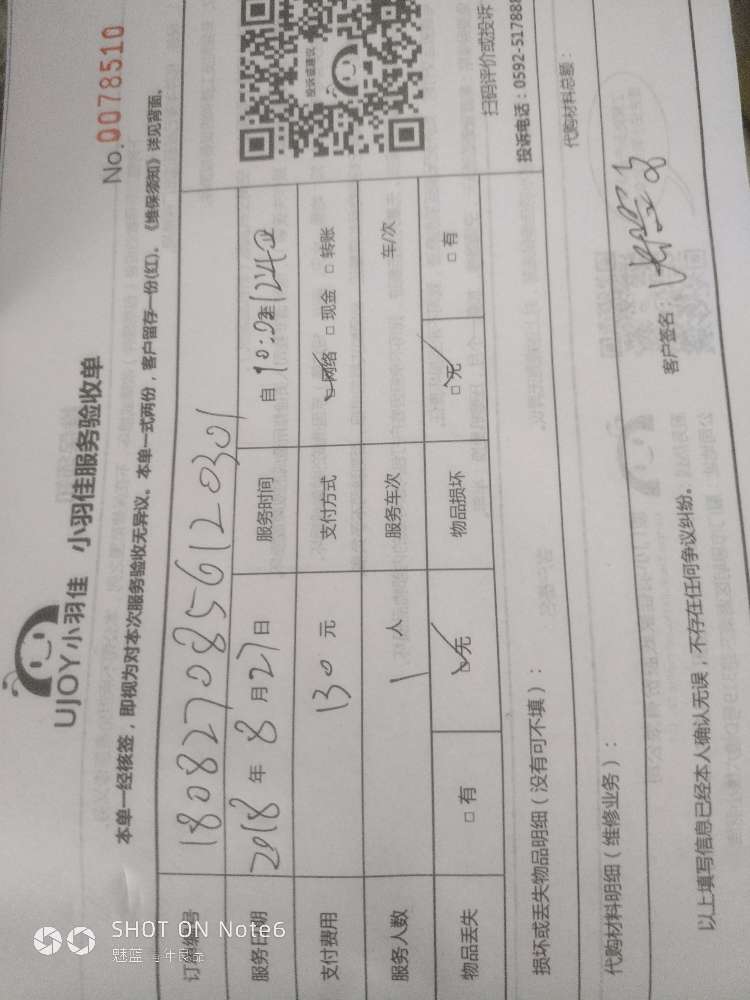 UJOY小羽佳 小羽佳服务验收单
No.0078510
本单一经核签，即视为对本次服务验收无异议。本单一式两份，客户留存一份(红)。《维保须知》详见背面。
订单编号 1808270856120301
服务日期 2018年8月27日 服务时间 自 至
支付费用 130元 支付方式 □网络 □现金 □转账
服务人数 1人 服务车次 车/次
物品丢失 □有 □无 物品损坏 □无 □有
投诉或建议
扫码评价或投诉
投诉电话：0592-517888
损坏或丢失物品明细（没有可不填）：
代购材料明细（维修业务）：
代购材料总额：
以上填写信息已经本人确认无误，不存在任何争议纠纷。
客户签名：
SHOT ON Note6
魅蓝